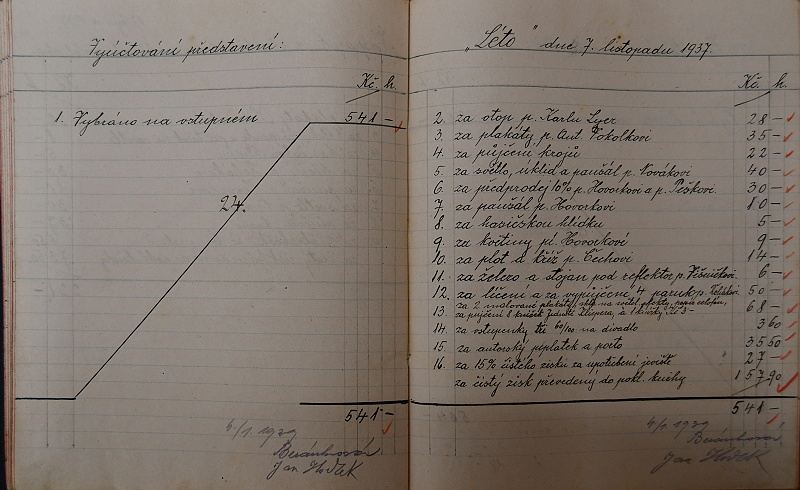 Vyúčtování představení:
Kč. h.
1. Vybráno na vstupném 541 -
24.
541 -
4/1 1939
Beránková
Jan
„Léto" dne 7. listopadu 1937.
Kč. h.
2. za otop p. Karlu 28 -
3. za plakáty p. Ant. 35 -
4. za půjčení krojů 22 -
5. za světlo, úklid a paušál p. Novákovi 40 -
6. za předprodej 10% p. Hovorkovi a p. Peškovi. 30 -
7. za paušál p. Hovorkovi 80 -
8. za hasičskou hlídku 5 -
9. za květiny pí. Hovorkové 9 -
10. za plot a kříž p. Čechovi 14 -
11. za železo a stojan pod reflektor p. 6 -
12. za líčení a za vypůjčené 4 paruky p. 50 -
13. za 2 malované plakáty, na
za půjčení 8 knížek a 1 knížky Kč 3- 68 -
14. za vstupenky na divadlo 3 60
15. za autorský poplatek a porto 35 50
16. za 15% čistého zisku za upotřebení jeviště " 27 -
za čistý zisk převedený do pokl. knihy 157 90
541 -
4/1 1939
Beránková
Jan